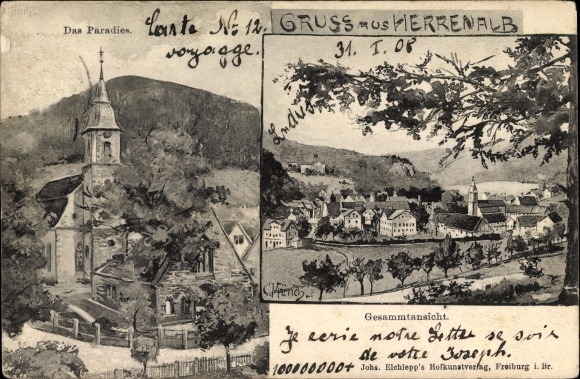 Das Paradies.
Carte No 12.
voyagge.
GRUSS aus HERRENALB
31. I. 08
C. Münich
Gesammtansicht.
Je ecrie notre lettre se soir
de votre Joseph.
100000000+
Johs. Elchlepp's Hofkunstverlag, Freiburg i. Br.